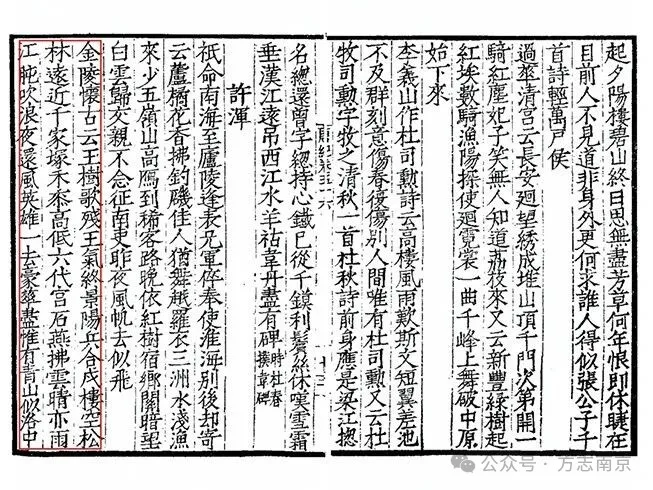 起夕陽樓碧山終日思無盡芳草何年恨即休睫在
目前人不見道非身外更何求誰人得似張公子千
首詩輕萬戶侯
過華清宮云長安迴望綉成堆山頂千門次第開一
騎紅塵妃子笑無人知道荔枝來又云新豐綠樹起
紅埃數騎漁陽探使迴霓裳一曲千峰上舞破中原
始下來
李義山作杜司勲詩云高樓風雨歎斯文短翼差池
不及群刻意傷春復傷別人間唯有杜司勲又云杜
牧司勲字牧之清秋一首杜秋詩前身應是梁江揔
名總還曾字總持心鐵已從千鏌利鬢絲休嘆雪霜
垂漢江遠吊西江水羊祜韋丹盡有碑時杜奉撰韋碑
許渾
祇命南海至廬陵逢表兄軍倅奉使淮海別後却寄
云蘆橘花香拂釣磯佳人猶舞越羅衣三洲水淺漁
來少五嶺山高鴈到稀客路晚依紅樹宿鄉關暗望
白雲歸交親不念征南吏昨夜風帆去似飛
金陵懷古云玉樹歌殘王氣終景陽兵合戍樓空松
林遠近千家塚禾黍高低六代宮石燕拂雲晴亦雨
江㹠吹浪夜還風英雄一去豪華盡惟有青山似洛中
公众号·方志南京